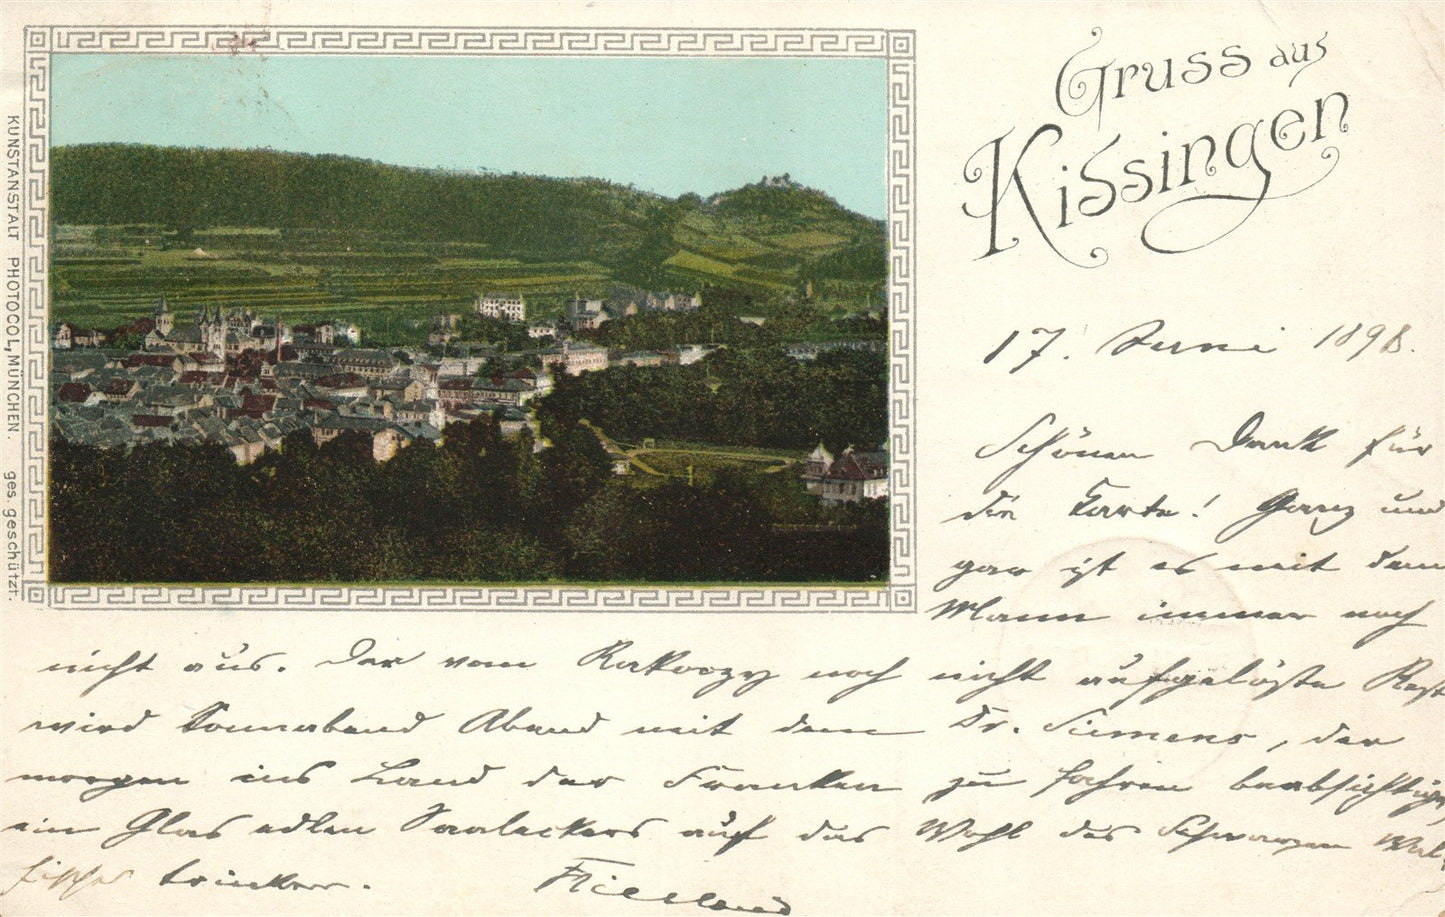 Gruss aus
Kissingen
KUNSTANSTALT PHOTOCOL, MÜNCHEN. ges. geschützt.
17. Juni 1898.
Schönen Dank für
die Karte! Ganz und
gar ist es mit dem
Mann immer noch
nicht aus. Der vom Rakoczy noch nicht aufgelöste Rest
wird Sonnabend Abend mit dem Dr. Siemens, der
morgen ins Land der Franken zu fahren beabsichtigt,
ein Glas edlen Saaleckers auf das Wohl des Schwarzen
trinken.